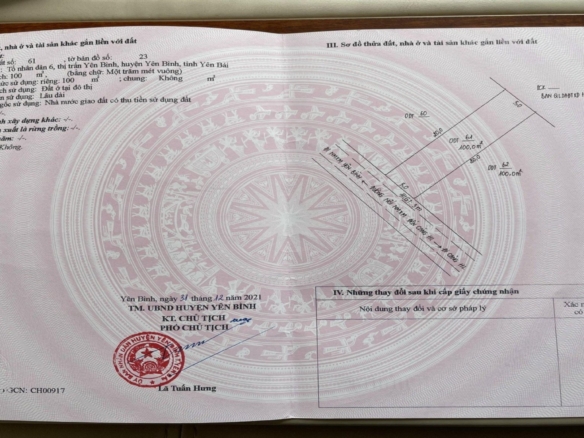 , nhà ở và tài sản khác gắn liền với đất
ất số: 61 , tờ bản đồ số: 23
: Tổ nhân dân 6, thị trấn Yên Bình, huyện Yên Bình, tỉnh Yên Bái
ích: 100 m², (bằng chữ: Một trăm mét vuông)
ức sử dụng: riêng: 100 m²; chung: Không m²
ch sử dụng: Đất ở tại đô thị
sử dụng: Lâu dài
gốc sử dụng: Nhà nước giao đất có thu tiền sử dụng đất
-/-.
nh xây dựng khác: -/-
n xuất là rừng trồng: -/-
năm: -/-
Không.
Yên Bình, ngày 31 tháng 12 năm 2021
TM. UBND HUYỆN YÊN BÌNH
KT. CHỦ TỊCH
PHÓ CHỦ TỊCH
Lã Tuấn Hưng
GCN: CH00917
III. Sơ đồ thửa đất, nhà ở và tài sản khác gắn liền với đất
ODT 60
5.0
20.0
ODT 61
100.0 m²
20.0
ODT 62
100.0 m²
5.0
IV. Những thay đổi sau khi cấp giấy chứng nhận
Nội dung thay đổi và cơ sở pháp lý
Xác n
có